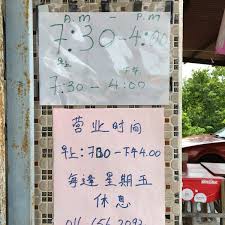 A.m - P.m
7:30-4:00
早上 下午
7:30-4:00
营业时间
早上:7:30-下午4.00
每逢星期五
休息